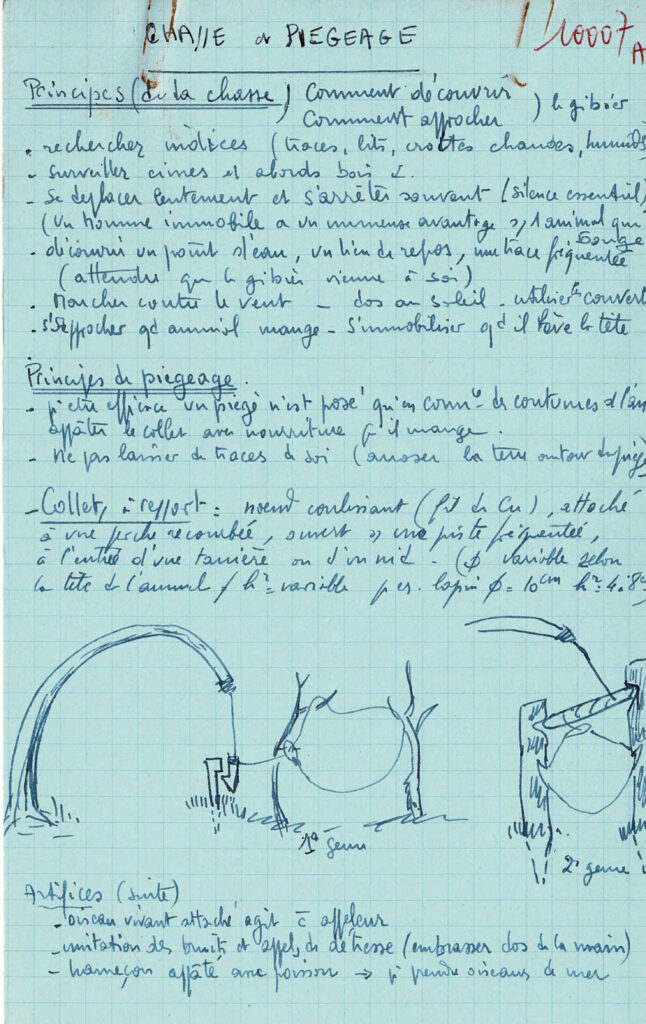 CHASSE et PIEGEAGE
10007 A
Principes (de la chasse) Comment découvrir
Comment approcher ) le gibier
. rechercher indices (traces, lits, crottes chaudes, humides
- surveiller cimes et abords bois
- Se déplacer lentement et s'arrêter souvent (silence essentiel)
(Un homme immobile a un immense avantage s/ 1 animal qui bouge
. découvrir un point d'eau, un lieu de repos, une trace fréquentée
(attendre que le gibier vienne à soi)
. Marcher contre le vent - dos au soleil - utiliser le couvert
. s'approcher qd animal mange - S'immobiliser qd il lève la tête
Principes de piégeage.
- p être efficace un piège n'est posé qu'en conn ce des coutumes d l'an
appâter le collet avec nourriture qu'il mange.
- Ne pas laisser de traces de soi (arroser la terre autour du piège
- Collet, à ressort = noeud coulissant (fil de Cu), attaché
à une perche recourbée, ouvert s/ une piste fréquentée,
à l'entrée d'une tanière ou d'un nid - (φ variable selon
la tête de l'animal / hr variable p ex. lapin φ = 10 cm hr = 4.8
1° genre
2° genre
Artifices (suite)
- oiseau vivant attaché agit c appeleur
- imitation des bruits et appels de détresse (embrasser dos de la main)
- hameçon appâté avec poisson → p prendre oiseaux de mer